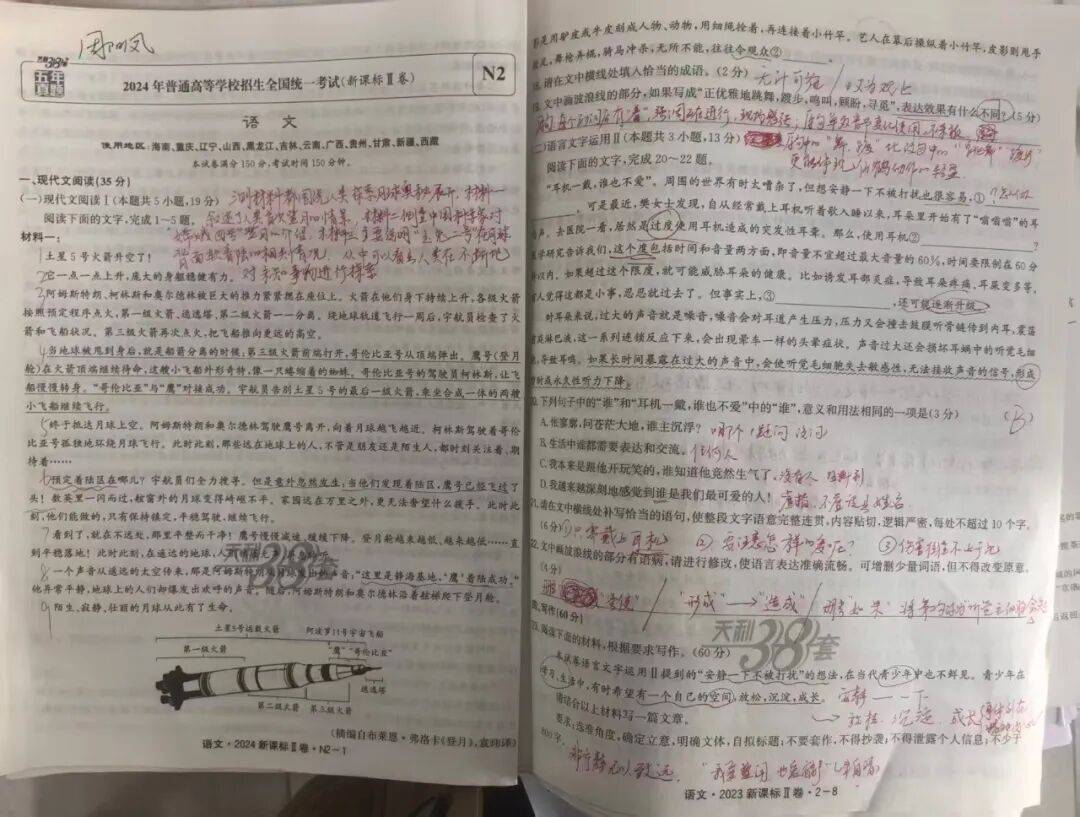 五年真题
2024年普通高等学校招生全国统一考试(新课标Ⅱ卷)
N2
语文
使用地区:海南、重庆、辽宁、山西、黑龙江、吉林、云南、广西、贵州、甘肃、新疆、西藏
本试卷满分150分,考试时间150分钟。
一、现代文阅读(35分)
(一)现代文阅读Ⅰ(本题共5小题,19分)
阅读下面的文字,完成1~5题。
材料一:
1土星5号火箭升空了!
2它一点一点上升,庞大的身躯稳健有力。
3阿姆斯特朗、柯林斯和奥尔德林被巨大的推力紧紧摁在座位上。火箭在他们身下持续上升,各级火箭
按照预定程序点火,第一级火箭、逃逸塔、第二级火箭一一分离。绕地球轨道飞行一周后,宇航员检查了火
箭和飞船状况。第三级火箭再次点火,把飞船推向更远的高空。
4当地球被甩到身后,就是船箭分离的时候,第三级火箭前端打开,哥伦比亚号从顶端弹出。鹰号(登月
舱)在火箭顶端继续待命,这艘小飞船外形奇特,像一只蜷缩着的蜘蛛。哥伦比亚号的驾驶员柯林斯,让飞
船慢慢转身。“哥伦比亚”与“鹰”对接成功。宇航员告别土星5号的最后一级火箭,乘坐合成一体的两艘
小飞船继续飞行。
5终于抵达月球上空。阿姆斯特朗和奥尔德林驾驶鹰号离开,向着月球越飞越近。柯林斯驾驶着哥伦
比亚号孤独地环绕月球飞行。此时此刻,那些远在地球上的人,不管是朋友还是陌生人,都时刻关注着、期
待着……
6预定着陆区在哪儿?宇航员们全力搜寻。但是意外忽然发生:当他们发现着陆区,鹰号已经飞过了
头!数英里一闪而过,舷窗外的月球变得崎岖不平。家园远在万里之外,更无法奢望什么援手。此时此
刻,他们能做的,只有保持镇定,平稳驾驶,继续飞行。
7看到了,就在不远处,那里平整而干净!鹰号慢慢减速,缓缓下降。登月舱越来越低,越来越低……直
到平稳落地!此时此刻,在遥远的地球,人
8一个声音从遥远的太空传来,那是阿姆斯特朗
声音,“这里是静海基地,‘鹰’着陆成功。”
他异常平静,地球上的人们却爆发出欢呼的声音。随后,阿姆斯特朗和奥尔德林沿着扶梯爬下登月舱。
9陌生、寂静、壮丽的月球从此有了生命。
天利38套
土星5号运载火箭
阿波罗11号宇宙飞船
第一级火箭
“鹰”“哥伦比亚”
逃逸塔
第二级火箭
第三级火箭
(摘编自布莱恩·弗洛卡《登月》,袁玮译)
语文·2024新课标Ⅱ卷·N2-1
影是用驴皮或牛皮刻成人物、动物,用细绳拴着,再连接着小竹竿。艺人在幕后操纵着小竹竿,皮影则甩手
舞枪弄棍,骑马冲杀,无所不能,往往令观众②
18.请在文中横线处填入恰当的成语。(2分)
19.文中画波浪线的部分,如果写成“正优雅地跳舞,踱步,鸣叫,顾盼,寻觅”,表达效果有什么不同?(5分)
(二)语言文字运用Ⅱ(本题共3小题,13分)
阅读下面的文字,完成20~22题。
“耳机一戴,谁也不爱”。周围的世界有时太嘈杂了,但想安静一下不被打扰也很容易,①
?可是最近,樊女士发现,自从经常戴上耳机听着歌入睡以来,耳朵里开始有了“嗡嗡嗡”的耳
鸣声。去医院一看,居然是过度使用耳机造成的突发性耳聋。那么,使用耳机②?
医学研究告诉我们,这个度包括时间和音量两方面,即音量不宜超过最大音量的60%,时间要限制在60分
钟以内。如果超过这个限度,就可能威胁耳朵的健康。比如诱发耳部炎症,导致耳朵疼痛、耳屎变多等。
有人觉得这都是小事,忍忍就过去了。但事实上,③,还可能逐渐升级。
对耳朵来说,过大的声音就是噪音,噪音会对耳道产生压力,压力又会撞击鼓膜听骨链传到内耳,震荡
淋巴液,这一系列连锁反应下来,会出现晕车一样的头晕症状。声音过大还会损坏耳蜗中的听觉毛细
胞,导致耳鸣。如果长时间暴露在过大的声音中,会使听觉毛细胞失去敏感性,无法接收声音的信号,形成
暂时或永久性听力下降。
20.下列句子中的“谁”和“耳机一戴,谁也不爱”中的“谁”,意义和用法相同的一项是(3分)(B)
A.怅寥廓,问苍茫大地,谁主沉浮? 哪个 疑问
B.生活中谁都需要表达和交流。任何人
C.我本来是跟他开玩笑的,谁知道他竟然生气了。没有人
D.我越来越深刻地感觉到谁是我们最可爱的人! 虚指
21.请在文中横线处补写恰当的语句,使整段文字语意完整连贯,内容贴切,逻辑严密,每处不超过10个字。
(6分) ①只需戴上耳机
22.文中画波浪线的部分有语病,请进行修改,使语言表达准确流畅。可增删少量词语,但不得改变原意。
(4分)
“形成”→“造成”
四、写作(60分)
23.阅读下面的材料,根据要求写作。(60分)
本试卷语言文字运用Ⅱ提到的“安静一下不被打扰”的想法,在当代青少年中也不鲜见。青少年在
学习、生活中,有时希望有一个自己的空间,放松,沉淀,成长。
请结合以上材料写一篇文章。
要求:选准角度,确定立意,明确文体,自拟标题;不要套作,不得抄袭;不得泄露个人信息;不少于
800字。
天利38套
语文·2023新课标Ⅱ卷·2-8